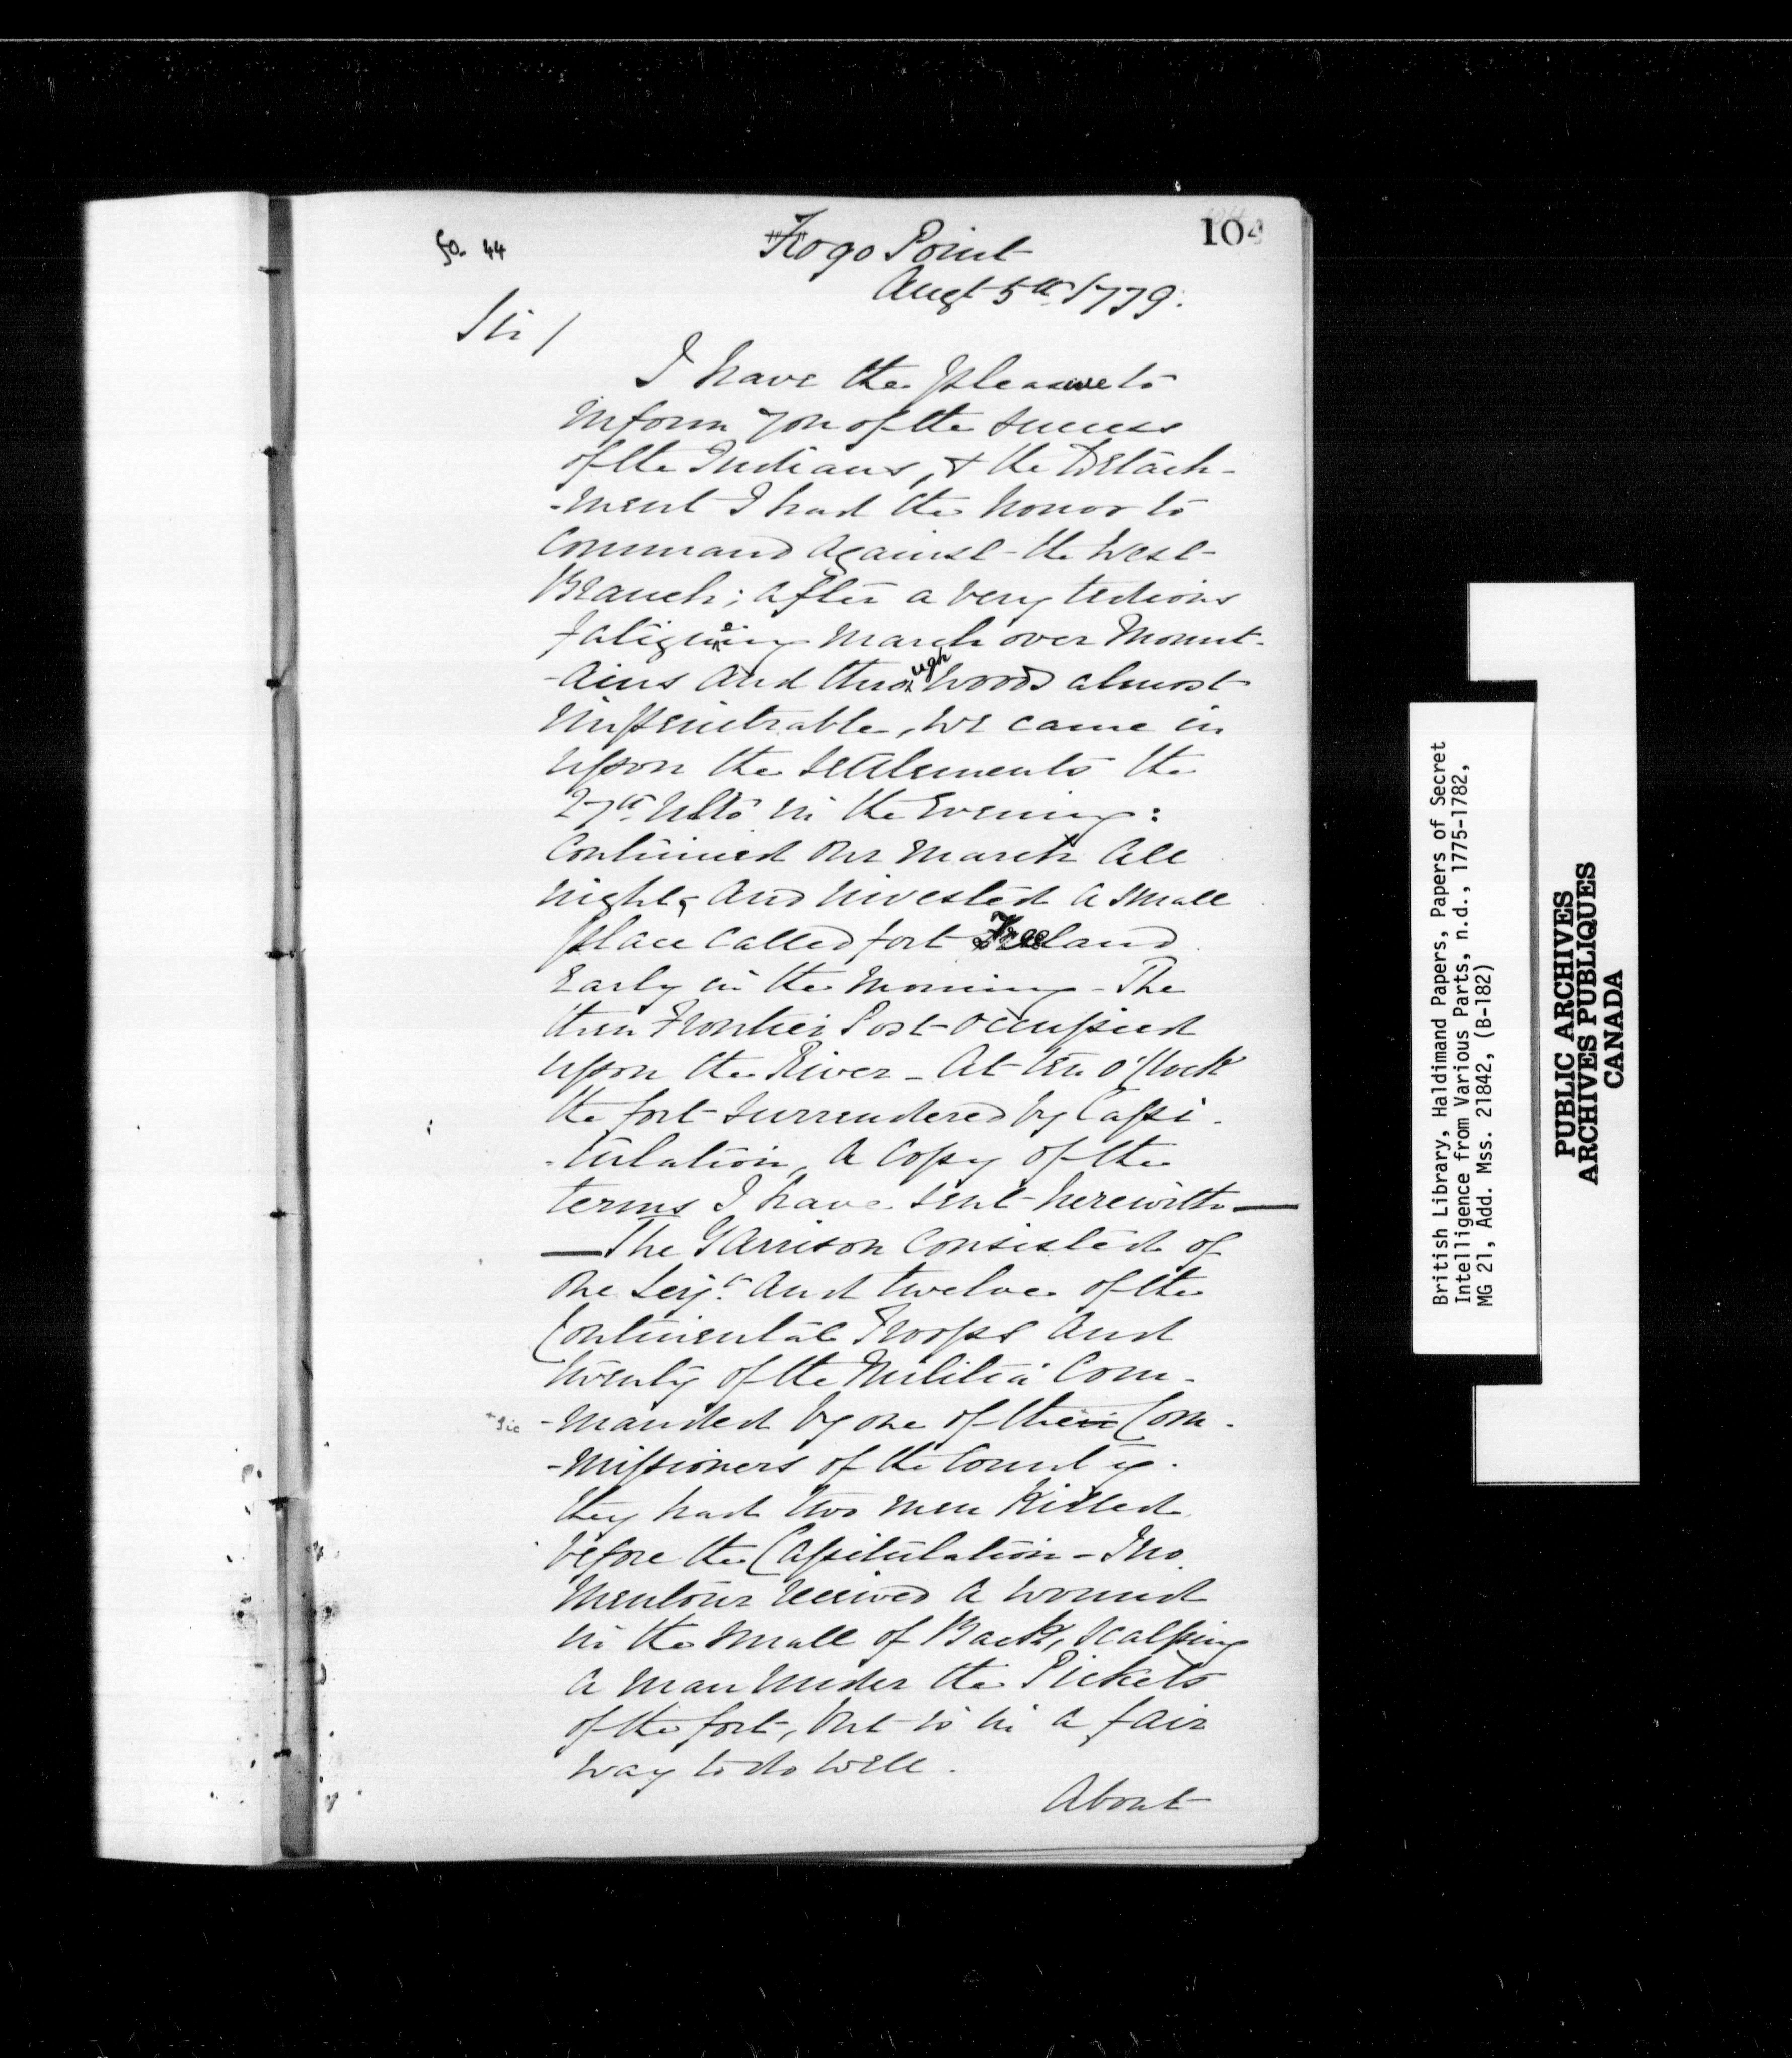 fo. 44
104
Fogo Point
Augt 5th 1779.
Sir /
I have the pleasure to
inform you of the success
of the Indians, & the Detach-
-ment I had the honor to
Command against the West
Branch; after a very tedious
fatigueing march over Mount-
-ains and through woods almost
impenitrable, we came in
upon the settlements the
27th Ulto in the Evening:
Continued our march all
night, and invested a small
place called fort Freeland
Early in the morning - The
then Frontier Post occupied
upon the River - At ten o'Clock
the fort surrendered by Capi-
-tulation, a copy of the
terms I have sent herewith —
— The Garrison Consisted of
one Serjt. and twelve of the
Continental Troops and
twenty of the Militia Com-
+ sic
-manded by one of their Com-
-missioners of the County.
they had two men Killed
before the Capitulation - Jno.
Montour received a wound
in the small of Back, scalping
a man under the Pickets
of the fort, but is in a fair
way to do well.
About
British Library, Haldimand Papers, Papers of Secret
Intelligence from Various Parts, n.d., 1775-1782,
MG 21, Add. Mss. 21842, (B-182)
PUBLIC ARCHIVES
ARCHIVES PUBLIQUES
CANADA